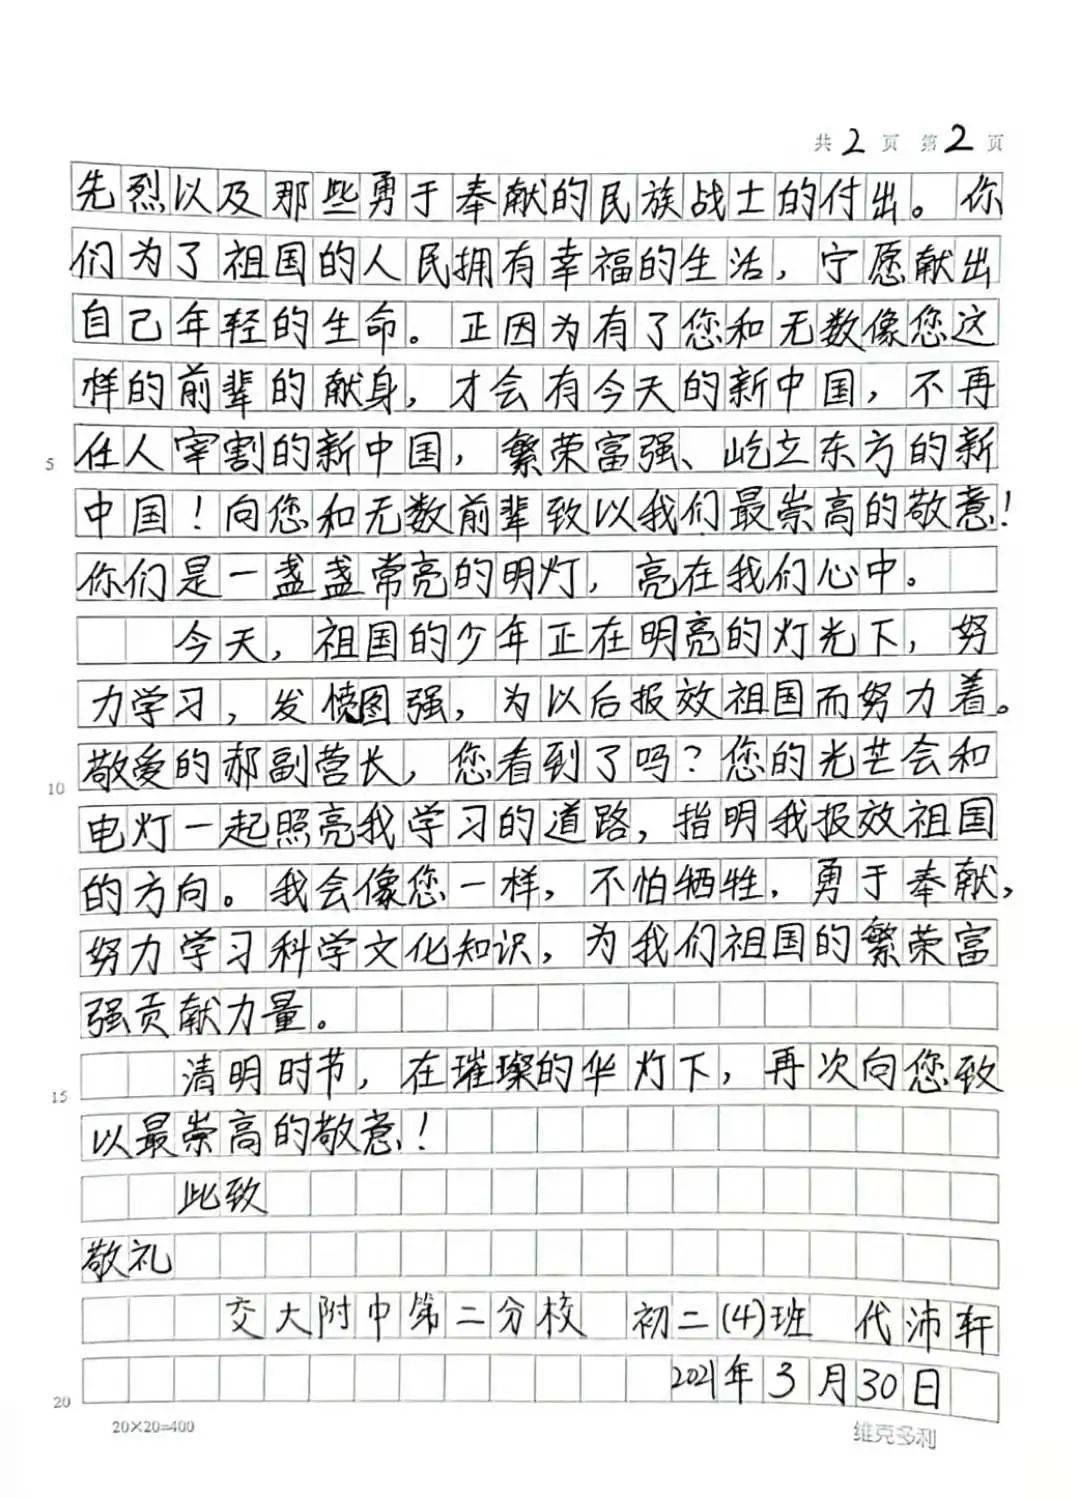 共2页 第2页
先烈以及那些勇于奉献的民族战士的付出。你
们为了祖国的人民拥有幸福的生活，宁愿献出
自己年轻的生命。正因为有了您和无数像您这
样的前辈的献身，才会有今天的新中国，不再
5 任人宰割的新中国，繁荣富强、屹立东方的新
中国！向您和无数前辈致以我们最崇高的敬意！
你们是一盏盏常亮的明灯，亮在我们心中。
今天，祖国的少年正在明亮的灯光下，努
力学习，发愤图强，为以后报效祖国而努力着。
10 敬爱的郝副营长，您看到了吗？您的光芒会和
电灯一起照亮我学习的道路，指明我报效祖国
的方向。我会像您一样，不怕牺牲，勇于奉献，
努力学习科学文化知识，为我们祖国的繁荣富
强贡献力量。
15 清明时节，在璀璨的华灯下，再次向您致
以最崇高的敬意！
此致
敬礼
交大附中第二分校 初二(4)班 代沛轩
20 2021年3月30日
20×20=400 维克多利